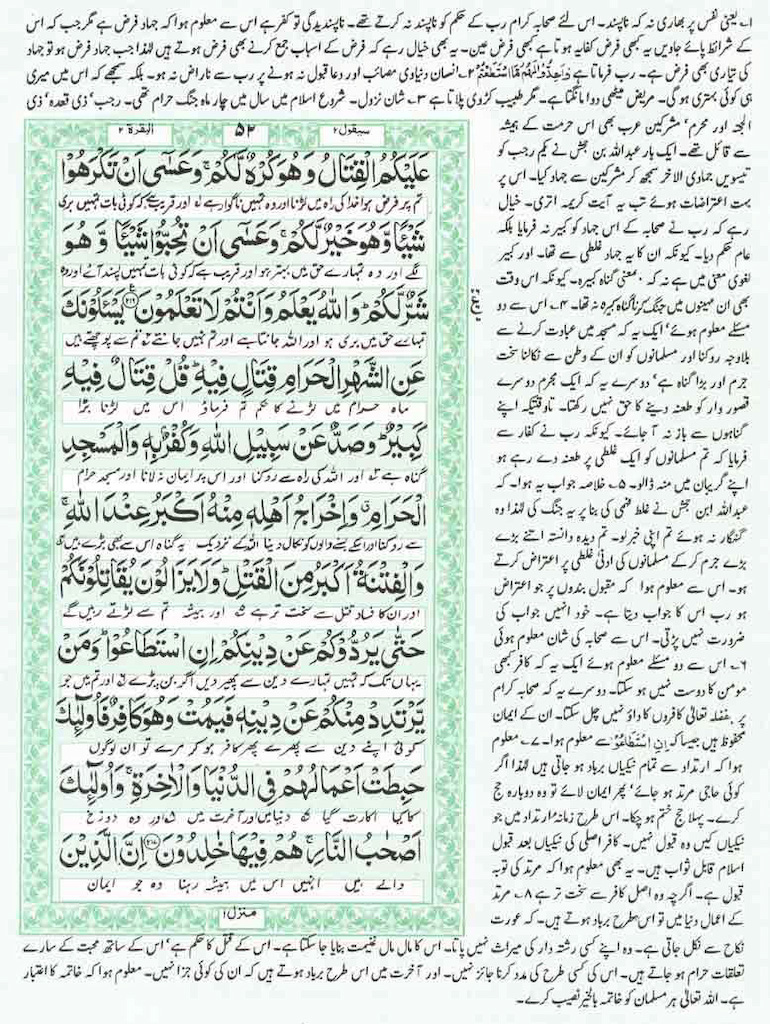 ۱۔ یعنی نفس پر بھاری نہ کہ ناپسند۔ اس لئے صحابہ کرام رب کے حکم کو ناپسند نہ کرتے تھے۔ ناپسندیدگی تو کفر ہے اس سے معلوم ہوا کہ جہاد فرض ہے مگر جب کہ اس
کے شرائط پائے جاویں یہ کبھی فرض کفایہ ہوتا ہے کبھی فرض عین۔ یہ بھی خیال رہے کہ فرض کے اسباب جمع کرنے بھی فرض ہوتے ہیں لہٰذا جب جہاد فرض ہو تو جہاد
کی تیاری بھی فرض ہے۔ رب فرماتا ہے وَاَعِدُّوْا لَهُمْ مَّا اسْتَطَعْتُمْ ۲۔ انسان دنیاوی مصائب اور دعا قبول نہ ہونے پر رب سے ناراض نہ ہو۔ بلکہ سمجھے کہ اس میں میری
ہی کوئی بہتری ہوگی۔ مریض میٹھی دوا مانگتا ہے۔ مگر طبیب کڑوی پلاتا ہے ۳۔ شان نزول۔ شروع اسلام میں سال میں چار ماہ جنگ حرام تھی۔ رجب' ذی قعدہ' ذی
الحجہ اور محرم' مشرکین عرب بھی اس حرمت کے ہمیشہ
سے قائل تھے۔ ایک بار عبداللہ بن جحش نے یکم رجب کو
تیسویں جمادی الاخر سمجھ کر مشرکین سے جہاد کیا۔ اس پر
بہت اعتراضات ہوئے تب یہ آیت کریمہ اتری۔ خیال
رہے کہ رب نے صحابہ کے اس جہاد کو کبیر نہ فرمایا بلکہ
عام حکم دیا۔ کیونکہ ان کا یہ جہاد غلطی سے تھا۔ اور کبیر
لغوی معنی میں ہے نہ کہ بمعنی گناہ کبیرہ۔ کیونکہ اس وقت
بھی ان مہینوں میں جنگ کرنا گناہ کبیرہ نہ تھا۔ ۴۔ اس سے دو
مسئلے معلوم ہوئے' ایک یہ کہ مسجد میں عبادت کرنے سے
بلاوجہ روکنا اور مسلمانوں کو ان کے وطن سے نکالنا سخت
جرم اور بڑا گناہ ہے' دوسرے یہ کہ ایک مجرم دوسرے
قصور وار کو طعنہ دینے کا حق نہیں رکھتا۔ تاوقتیکہ اپنے
گناہوں سے باز نہ آ جائے۔ کیونکہ رب نے کفار سے
فرمایا کہ تم مسلمانوں کو ایک غلطی پر طعنہ دے رہے ہو
اپنے گریبان میں منہ ڈالو۔ ۵۔ خلاصہ جواب یہ ہوا۔ کہ
عبداللہ ابن جحش نے غلط فہمی کی بنا پر یہ جنگ کی لہٰذا وہ
گنہگار نہ ہوئے تم اپنی خبر لو۔ تم دیدہ دانستہ اتنے بڑے
بڑے جرم کر کے مسلمانوں کی ادنیٰ غلطی پر اعتراض کرتے
ہو۔ اس سے معلوم ہوا کہ مقبول بندوں پر جو اعتراض
ہو رب اس کا جواب دیتا ہے۔ خود انہیں جواب کی
ضرورت نہیں پڑتی۔ اس سے صحابہ کی شان معلوم ہوئی
۶۔ اس سے دو مسئلے معلوم ہوئے ایک یہ کہ کافر کبھی
مومن کا دوست نہیں ہو سکتا۔ دوسرے یہ کہ صحابہ کرام
پر بفضلہ تعالیٰ کافروں کا داؤ نہیں چل سکتا۔ ان کے ایمان
محفوظ ہیں جیسا کہ اِنِ اسْتَطَاعُوْا سے معلوم ہوا۔ ۷۔ معلوم
ہوا کہ ارتداد سے تمام نیکیاں برباد ہو جاتی ہیں لہٰذا اگر
کوئی حاجی مرتد ہو جائے' پھر ایمان لائے تو وہ دوبارہ حج
کرے۔ پہلا حج ختم ہو چکا۔ اس طرح زمانہ ارتداد میں جو
نیکیاں کیں وہ قبول نہیں۔ کافر اصلی کی نیکیاں بعد قبول
اسلام قابل ثواب ہیں۔ یہ بھی معلوم ہوا کہ مرتد کی توبہ
قبول ہے۔ اگرچہ وہ اصل کافر سے سخت تر ہے ۸۔ مرتد
کے اعمال دنیا میں تو اس طرح برباد ہوتے ہیں۔ کہ عورت
نکاح سے نکل جاتی ہے۔ وہ اپنے کسی رشتہ دار کی میراث نہیں پاتا۔ اس کا مال مال غنیمت بنایا جا سکتا ہے۔ اس کے قتل کا حکم ہے' اس کے ساتھ محبت کے سارے
تعلقات حرام ہو جاتے ہیں۔ اس کی کسی طرح کی مدد کرنا جائز نہیں۔ اور آخرت میں اس طرح برباد ہوتے ہیں کہ ان کی کوئی جزا نہیں۔ معلوم ہوا کہ خاتمہ کا اعتبار
ہے۔ اللہ تعالیٰ ہر مسلمان کو خاتمہ بالخیر نصیب کرے۔
سیقول ۲
۵۲
البقرۃ ۲
عَلَيْكُمُ الْقِتَالُ وَهُوَ كُرْهٌ لَّكُمْ ۚ وَعَسٰٓى اَنْ تَكْرَهُوْا
تم پر فرض ہوا خدا کی راہ میں لڑنا اور وہ تمہیں ناگوار ہے اور قریب ہے کہ کوئی بات تمہیں بری
شَيْـًٔا وَّهُوَ خَيْرٌ لَّكُمْ ۚ وَعَسٰٓى اَنْ تُحِبُّوْا شَيْـًٔا وَّهُوَ
لگے اور وہ تمہارے حق میں بہتر ہو اور قریب ہے کہ کوئی بات تمہیں پسند آئے اور وہ
شَرٌّ لَّكُمْ ؕ وَاللّٰهُ يَعْلَمُ وَاَنْتُمْ لَا تَعْلَمُوْنَ ﴿۲۱۶﴾ يَسْـَٔلُوْنَكَ
تمہارے حق میں بری ہو اور اللہ جانتا ہے اور تم نہیں جانتے تم سے پوچھتے ہیں
عَنِ الشَّهْرِ الْحَرَامِ قِتَالٍ فِيْهِ ؕ قُلْ قِتَالٌ فِيْهِ
ماہ حرام میں لڑنے کا حکم تم فرماؤ اس میں لڑنا بڑا
كَبِيْرٌ ؕ وَصَدٌّ عَنْ سَبِيْلِ اللّٰهِ وَكُفْرٌۢ بِهٖ وَالْمَسْجِدِ
گناہ ہے اور اللہ کی راہ سے روکنا اور اس پر ایمان نہ لانا اور مسجد حرام
الْحَرَامِ ۗ وَاِخْرَاجُ اَهْلِهٖ مِنْهُ اَكْبَرُ عِنْدَ اللّٰهِ ۚ
سے روکنا اور اس کے بسنے والوں کو نکال دینا اللہ کے نزدیک یہ گناہ اس سے بھی بڑے ہیں
وَالْفِتْنَةُ اَكْبَرُ مِنَ الْقَتْلِ ؕ وَلَا يَزَالُوْنَ يُقَاتِلُوْنَكُمْ
اور ان کا فساد قتل سے سخت تر ہے اور ہمیشہ تم سے لڑتے رہیں گے
حَتّٰى يَرُدُّوْكُمْ عَنْ دِيْنِكُمْ اِنِ اسْتَطَاعُوْا ؕ وَمَنْ
یہاں تک کہ تمہیں تمہارے دین سے پھیر دیں اگر بن پڑے اور تم میں جو
يَّرْتَدِدْ مِنْكُمْ عَنْ دِيْنِهٖ فَيَمُتْ وَهُوَ كَافِرٌ فَاُولٰٓئِكَ
کوئی اپنے دین سے پھرے پھر کافر ہو کر مرے تو ان لوگوں
حَبِطَتْ اَعْمَالُهُمْ فِى الدُّنْيَا وَالْاٰخِرَةِ ۚ وَاُولٰٓئِكَ
کا کیا اکارت گیا دنیا میں اور آخرت میں اور وہ دوزخ
اَصْحٰبُ النَّارِ ۚ هُمْ فِيْهَا خٰلِدُوْنَ ﴿۲۱۷﴾ اِنَّ الَّذِيْنَ
والے ہیں انہیں اس میں ہمیشہ رہنا وہ جو ایمان
منزل ۱